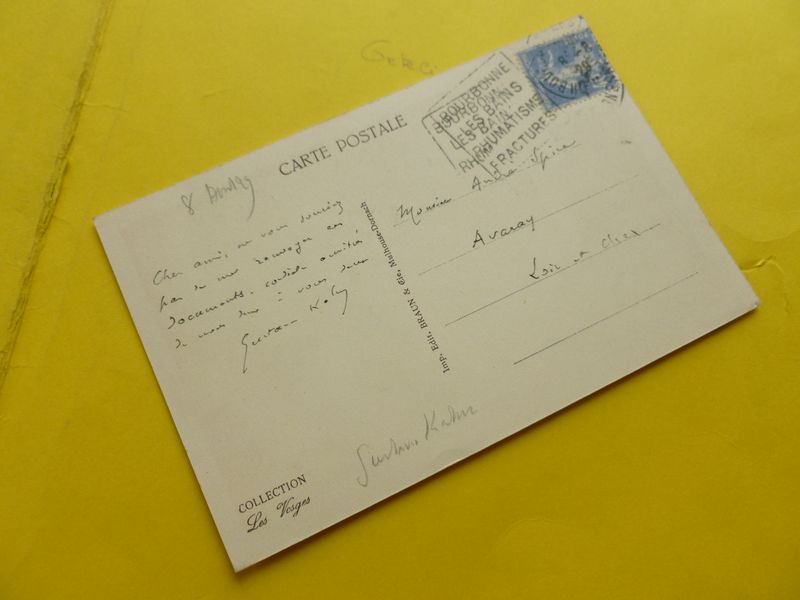 CARTE POSTALE
BOURBONNE
LES BAINS
RHUMATISMES
FRACTURES
8
Cher ami, ne vous souciez
pas de me renvoyer ces
documents. cordiales amitiés
de nous deux à vous deux
Gustave Kahn
Monsieur André Spire
Avaray
Loir et Cher
Imp. Edit. BRAUN & Cie, Mulhouse-Dornach
Gustave Kahn
COLLECTION
Les Vosges